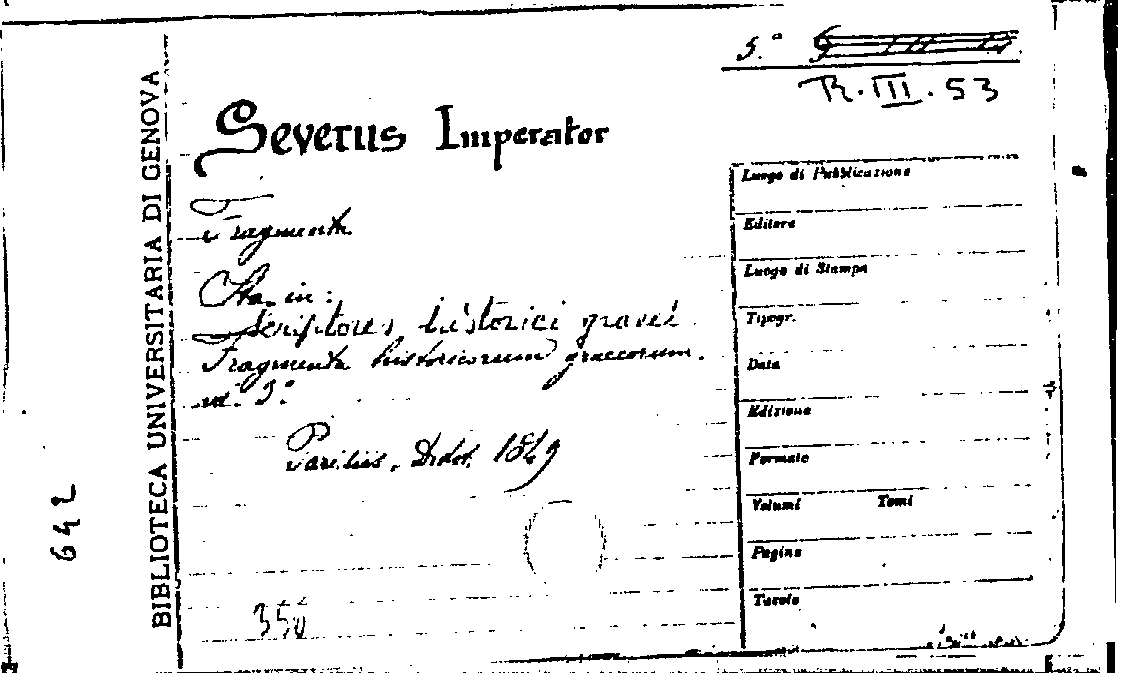 5.°
R.III.53
Severus Imperator
Fragmenta.
Sta in:
Scriptores historici graeci
Fragmenta historicorum graecorum.
vol. 3.°
Parisiis, Didot. 1849
350
642
BIBLIOTECA UNIVERSITARIA DI GENOVA
Luogo di Pubblicazione
Editore
Luogo di Stampa
Tipogr.
Data
Edizione
Formato
Volumi Tomi
Pagine
Tavole